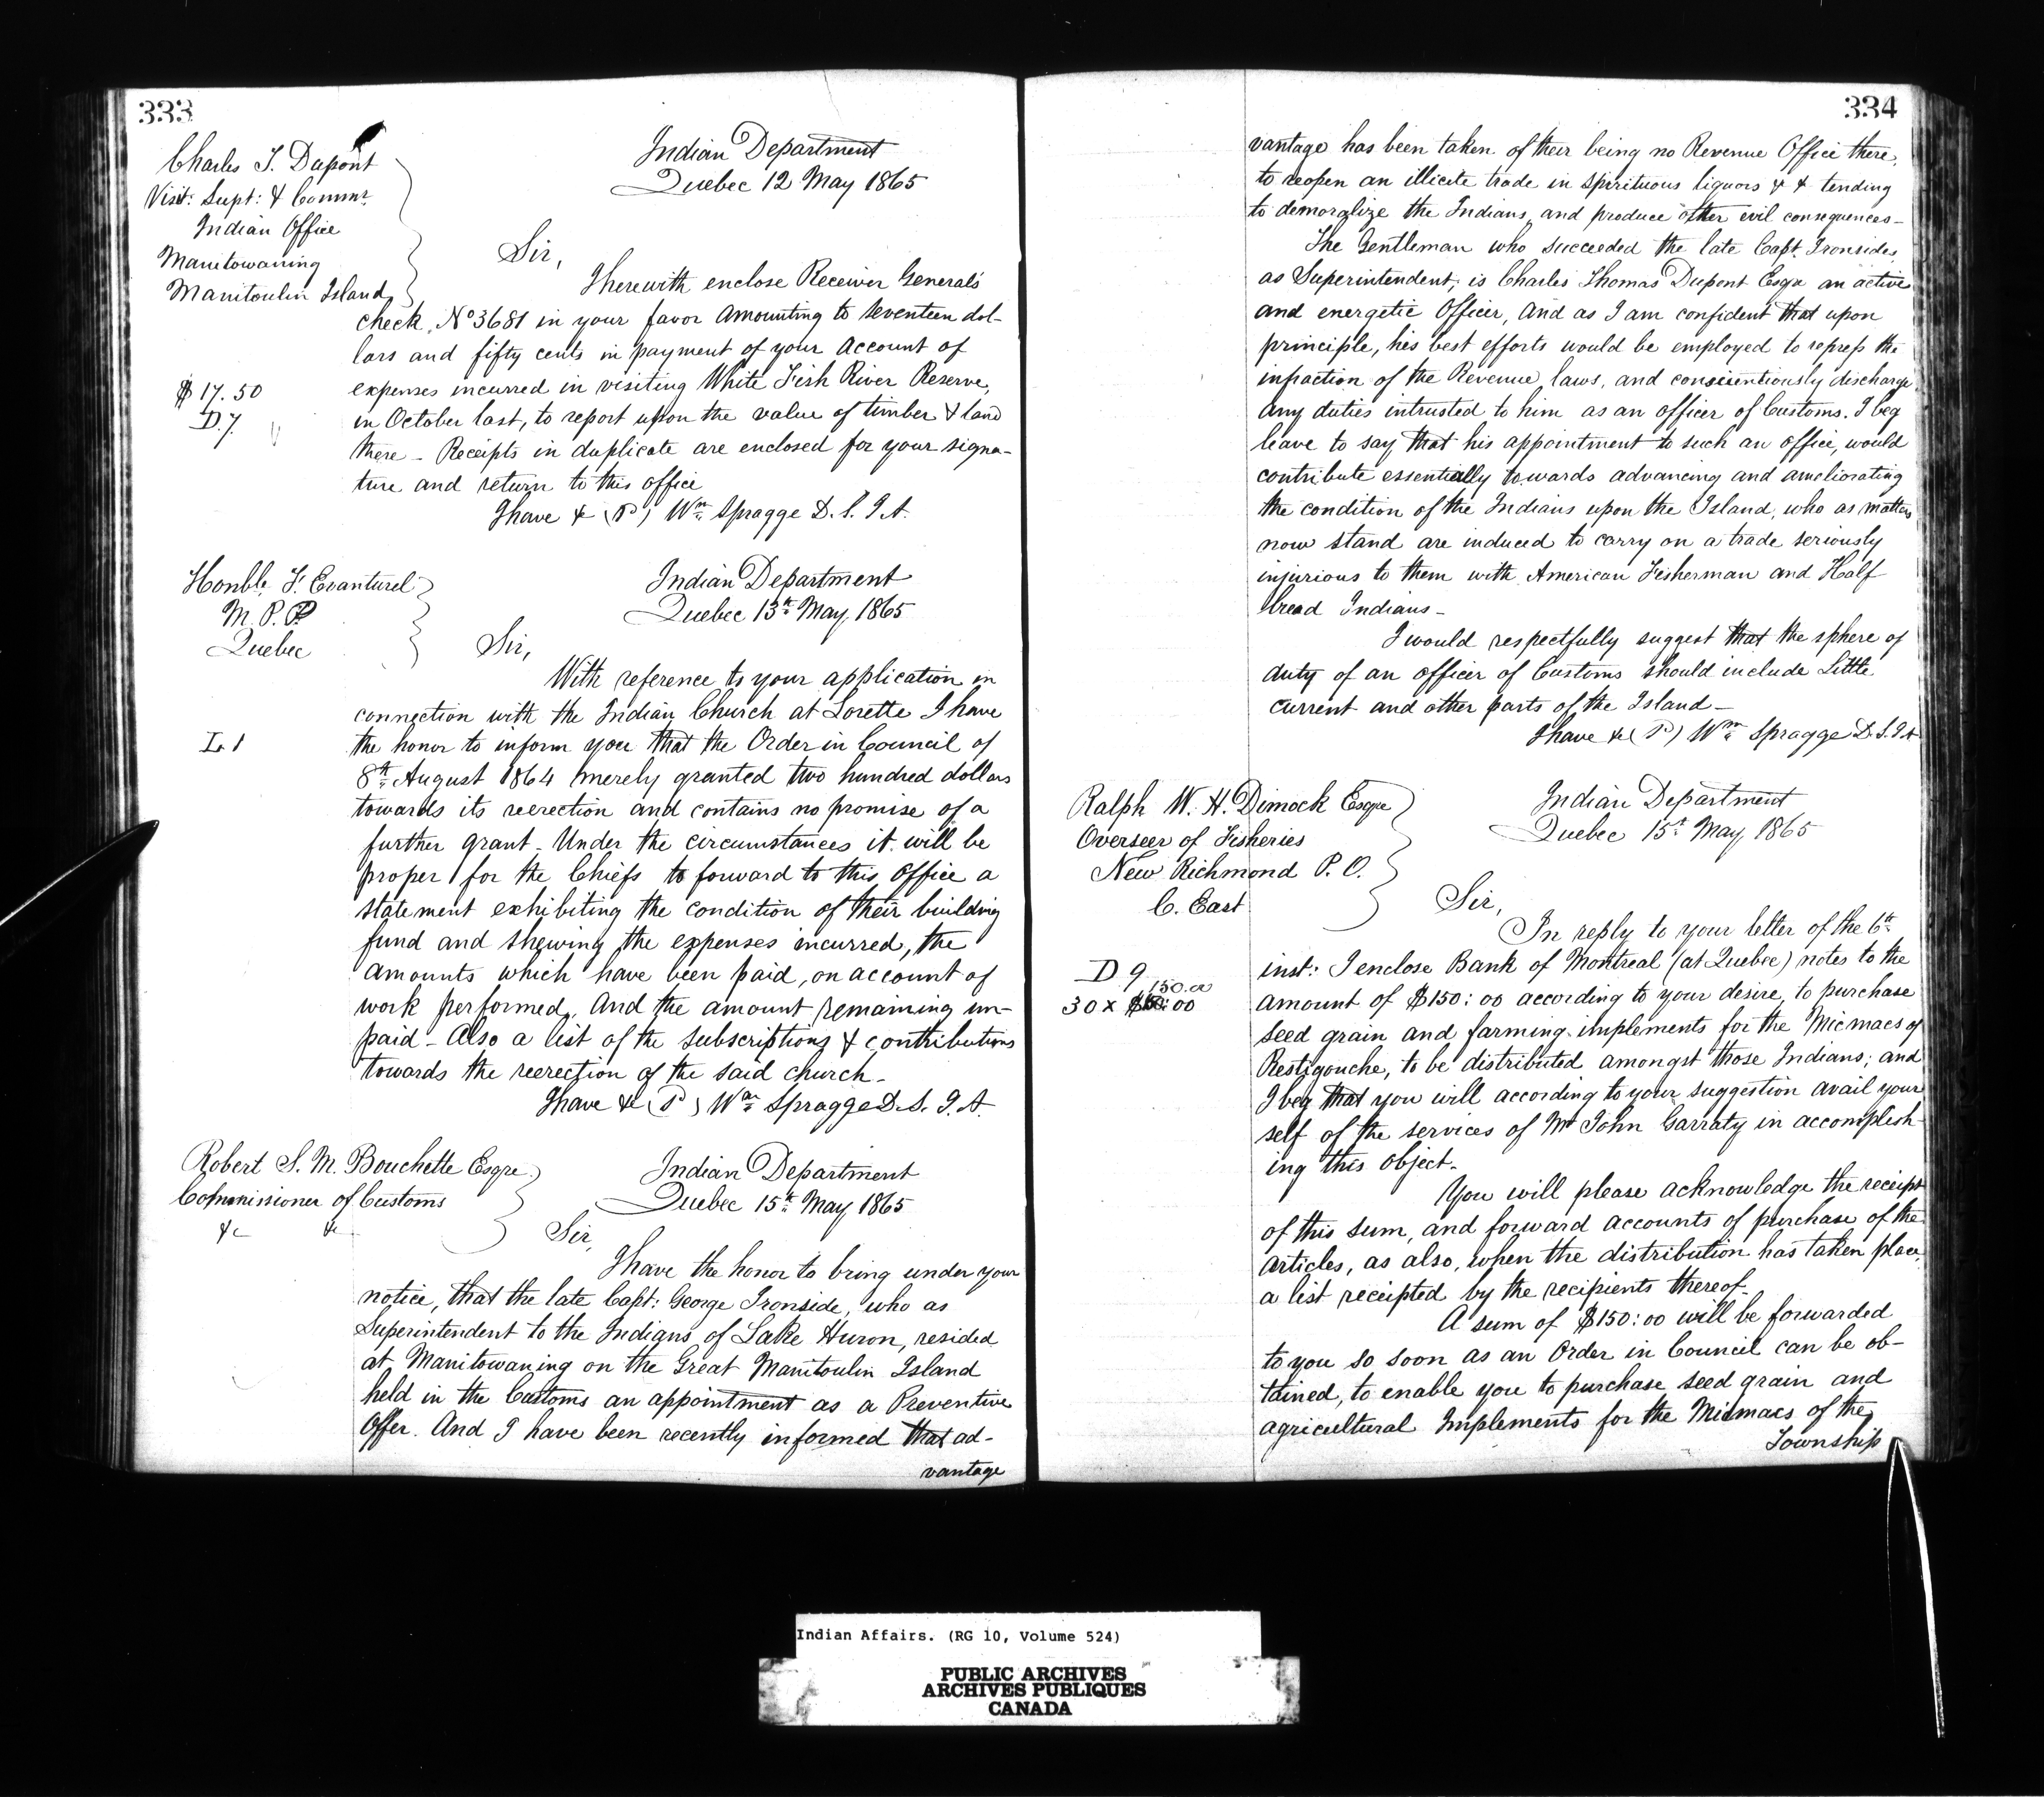 333
Charles T. Dupont
Visit: Supt: & Commr.
Indian Office
Manitowaning
Manitoulin Island
Indian Department
Quebec 12 May 1865
Sir,
I herewith enclose Receiver General's
check, No 3681 in your favor amounting to seventeen dol-
lars and fifty cents in payment of your account of
$17.50
expenses incurred in visiting White Fish River Reserve,
D.7.
in October last, to report upon the value of timber & land
there _ Receipts in duplicate are enclosed for your signa-
ture and return to this office
I have & (P) Wm Spragge D.S.I.A.
Honble. F. Evanturel
M.P.P.
Quebec
Indian Department
Quebec 13th May, 1865
Sir,
With reference to your application in
connection with the Indian Church at Lorette I have
L 1
the honor to inform you that the Order in Council of
8th August 1864 merely granted two hundred dollars
towards its reerection and contains no promise of a
further grant _ Under the circumstances it will be
proper for the Chiefs to forward to this office a
statement exhibiting the condition of their building
fund and shewing the expenses incurred, the
amounts which have been paid, on account of
work performed, And the amount remaining un-
paid _ Also a list of the subscriptions & contributions
towards the reerection of the said church _
I have &c (P) Wm Spragge D.S.I.A.
Robert S. M. Bouchette Esqre
Commissioner of Customs
&c &c
Indian Department
Quebec 15th May, 1865
Sir,
I have the honor to bring under your
notice, that the late Capt: George Ironside, who as
Superintendent to the Indians of Lake Huron, resided
at Manitowaning on the Great Manitoulin Island
held in the Customs an appointment as a Preventive
Offer. And I have been recently informed that ad-
vantage
334
vantage has been taken of their being no Revenue Office there,
to reopen an illicite trade in spirituous liquors & & tending
to demoralize the Indians, and produce other evil consequences _
The Gentleman who succeeded the late Capt. Ironsides,
as Superintendent, is Charles Thomas Dupont Esqr an active
and energetic Officer, And as I am confident that upon
principle, his best efforts would be employed to repress the
infraction of the Revenue laws, and consientiously discharge
any duties intrusted to him as an officer of Customs. I beg
leave to say that his appointment to such an office, would
contribute essentially towards advancing and ameliorating
the condition of the Indians upon the Island, who as matters
now stand are induced to carry on a trade seriously
injurious to them with American Fisherman and Half
bread Indians _
I would respectfully suggest that the sphere of
duty of an officer of Customs should include Little
current and other parts of the Island _
I have &c (P) Wm Spragge D.S.I.A
Ralph W. H. Dimock Esqre
Overseer of Fisheries
New Richmond P.O.
C. East
Indian Department
Quebec 15t May, 1865
Sir,
In reply to your letter of the 6th
D 9
inst: I enclose Bank of Montreal (at Quebec) notes to the
150.00
30 x $ :00
amount of $150:00 according to your desire, to purchase
seed grain and farming implements for the Micmacs of
Restigouche, to be distributed amongst those Indians; and
I beg that you will according to your suggestion avail your
self of the services of Mr John Garraty in accomplish-
ing this object _
You will please acknowledge the receipt
of this sum, and forward accounts of purchase of the
articles, as also, when the distribution has taken place,
a list receipted by the recipients thereof _
A sum of $150:00 will be forwarded
to you so soon as an Order in Council can be ob-
tained, to enable you to purchase seed grain and
agricultural Implements for the Micmacs of the
Township
Indian Affairs. (RG 10, Volume 524)
PUBLIC ARCHIVES
ARCHIVES PUBLIQUES
CANADA